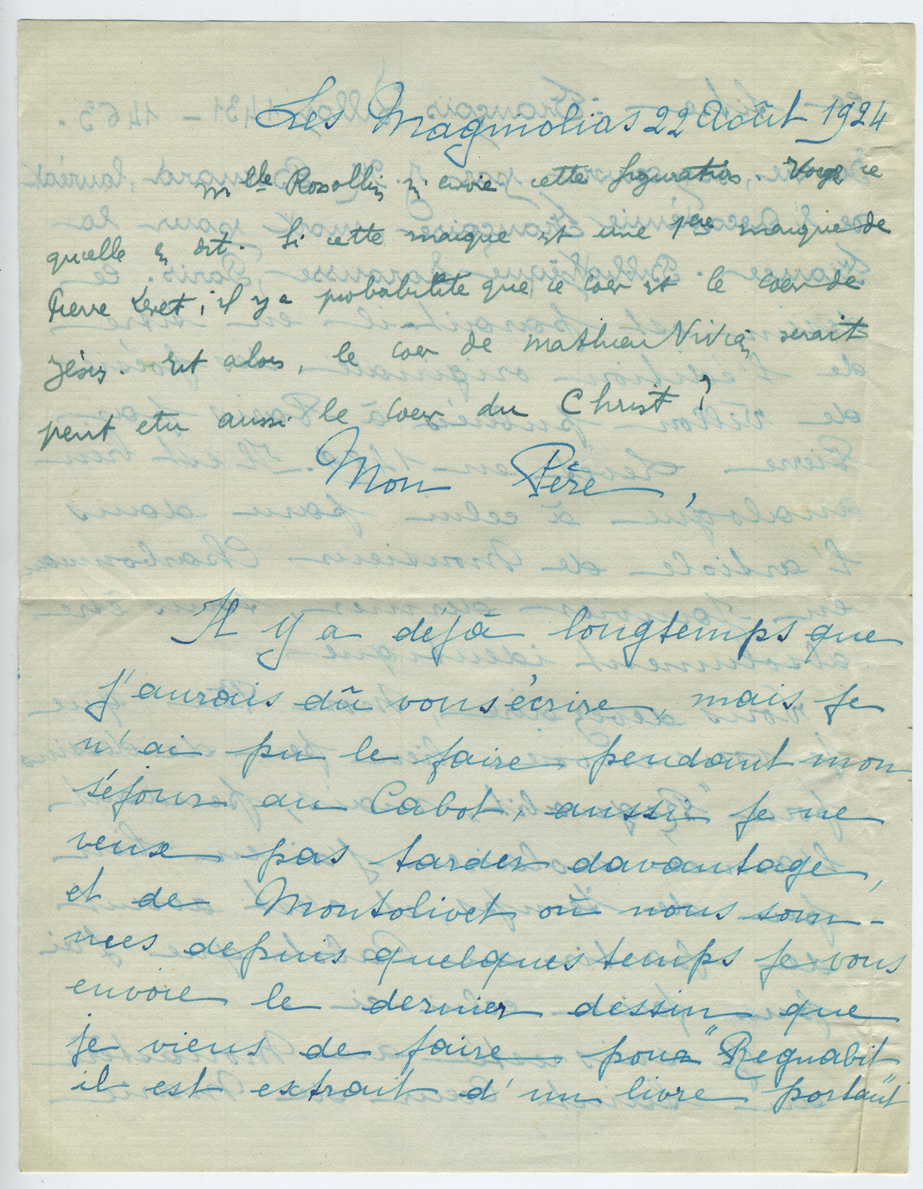 Les Magnolias 22 Août 1924
Mlle Rosollin m'envoie cette figuration. Voyez ce
qu'elle en dit. Si cette marque est une 1ère marque de
Pierre Levet, il y a probabilité que ce coeur est le coeur de
Jésus. Et alors, le coeur de Mathieu Vivian serait
peut etre aussi le coeur du Christ ?
Mon Père,
Il y a déjà longtemps que
j'aurais dû vous écrire, mais je
n'ai pu le faire pendant mon
séjour au Cabot, aussi je ne
veux pas tarder davantage,
et de Montolivet où nous som-
mes depuis quelques temps je vous
envoie le dernier dessin que
je viens de faire pour "Regnabit"
il est extrait d'un livre portant